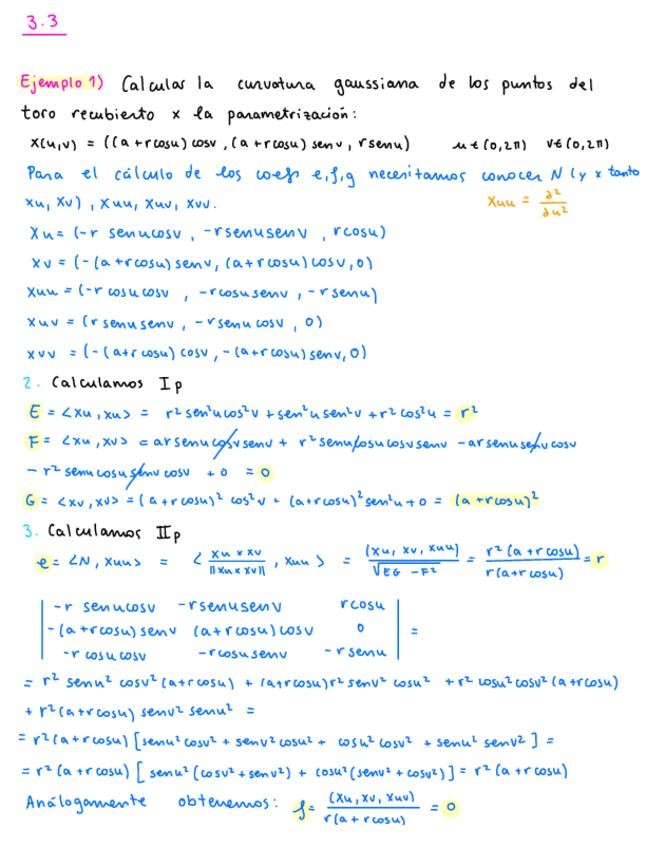 3.3
Ejemplo 1) Calcular la curvatura gaussiana de los puntos del
toro recubierto x la parametrización:
x(u,v) = ((a + r cosu) cosv, (a + r cosu) senv, r senu) u ∈ (0,2π) v ∈ (0,2π)
Para el cálculo de los coefs e,f,g necesitamos conocer N (y x tanto
xu, xv), xuu, xuv, xvv. xuu = ∂²/∂u²
xu = (-r senu cosv, -r senu senv, r cosu)
xv = (-(a + r cosu) senv, (a + r cosu) cosv, 0)
xuu = (-r cosu cosv, -r cosu senv, -r senu)
xuv = (r senu senv, -r senu cosv, 0)
xvv = (-(a + r cosu) cosv, -(a + r cosu) senv, 0)
2. Calculamos Ip
E = <xu, xu> = r² sen²u cos²v + sen²u sen²v + r² cos²u = r²
F = <xu, xv> = ar senu cosv senv + r² senu cosu cosv senv - ar senu senv cosv
- r² senu cosu senv cosv + 0 = 0
G = <xv, xv> = (a + r cosu)² cos²v - (a + r cosu)² sen²u + 0 = (a + r cosu)²
3. Calculamos IIp
e = <N, xuu> = < xu × xv / ||xu × xv||, xuu > = (xu, xv, xuu) / √(EG - F²) = r² (a + r cosu) / r(a + r cosu) = r
| -r senu cosv -r senu senv r cosu |
| -(a + r cosu) senv (a + r cosu) cosv 0 | =
| -r cosu cosv -r cosu senv -r senu |
= r² senu² cosv² (a + r cosu) + (a + r cosu) r² senv² cosu² + r² cosu² cosv² (a + r cosu)
+ r² (a + r cosu) senv² senu² =
= r² (a + r cosu) [senu² cosv² + senv² cosu² + cosu² cosv² + senu² senv²] =
= r² (a + r cosu) [senu² (cosv² + senv²) + cosu² (senv² + cosv²)] = r² (a + r cosu)
Análogamente obtenemos: f = (xu, xv, xuv) / r(a + r cosu) = 0